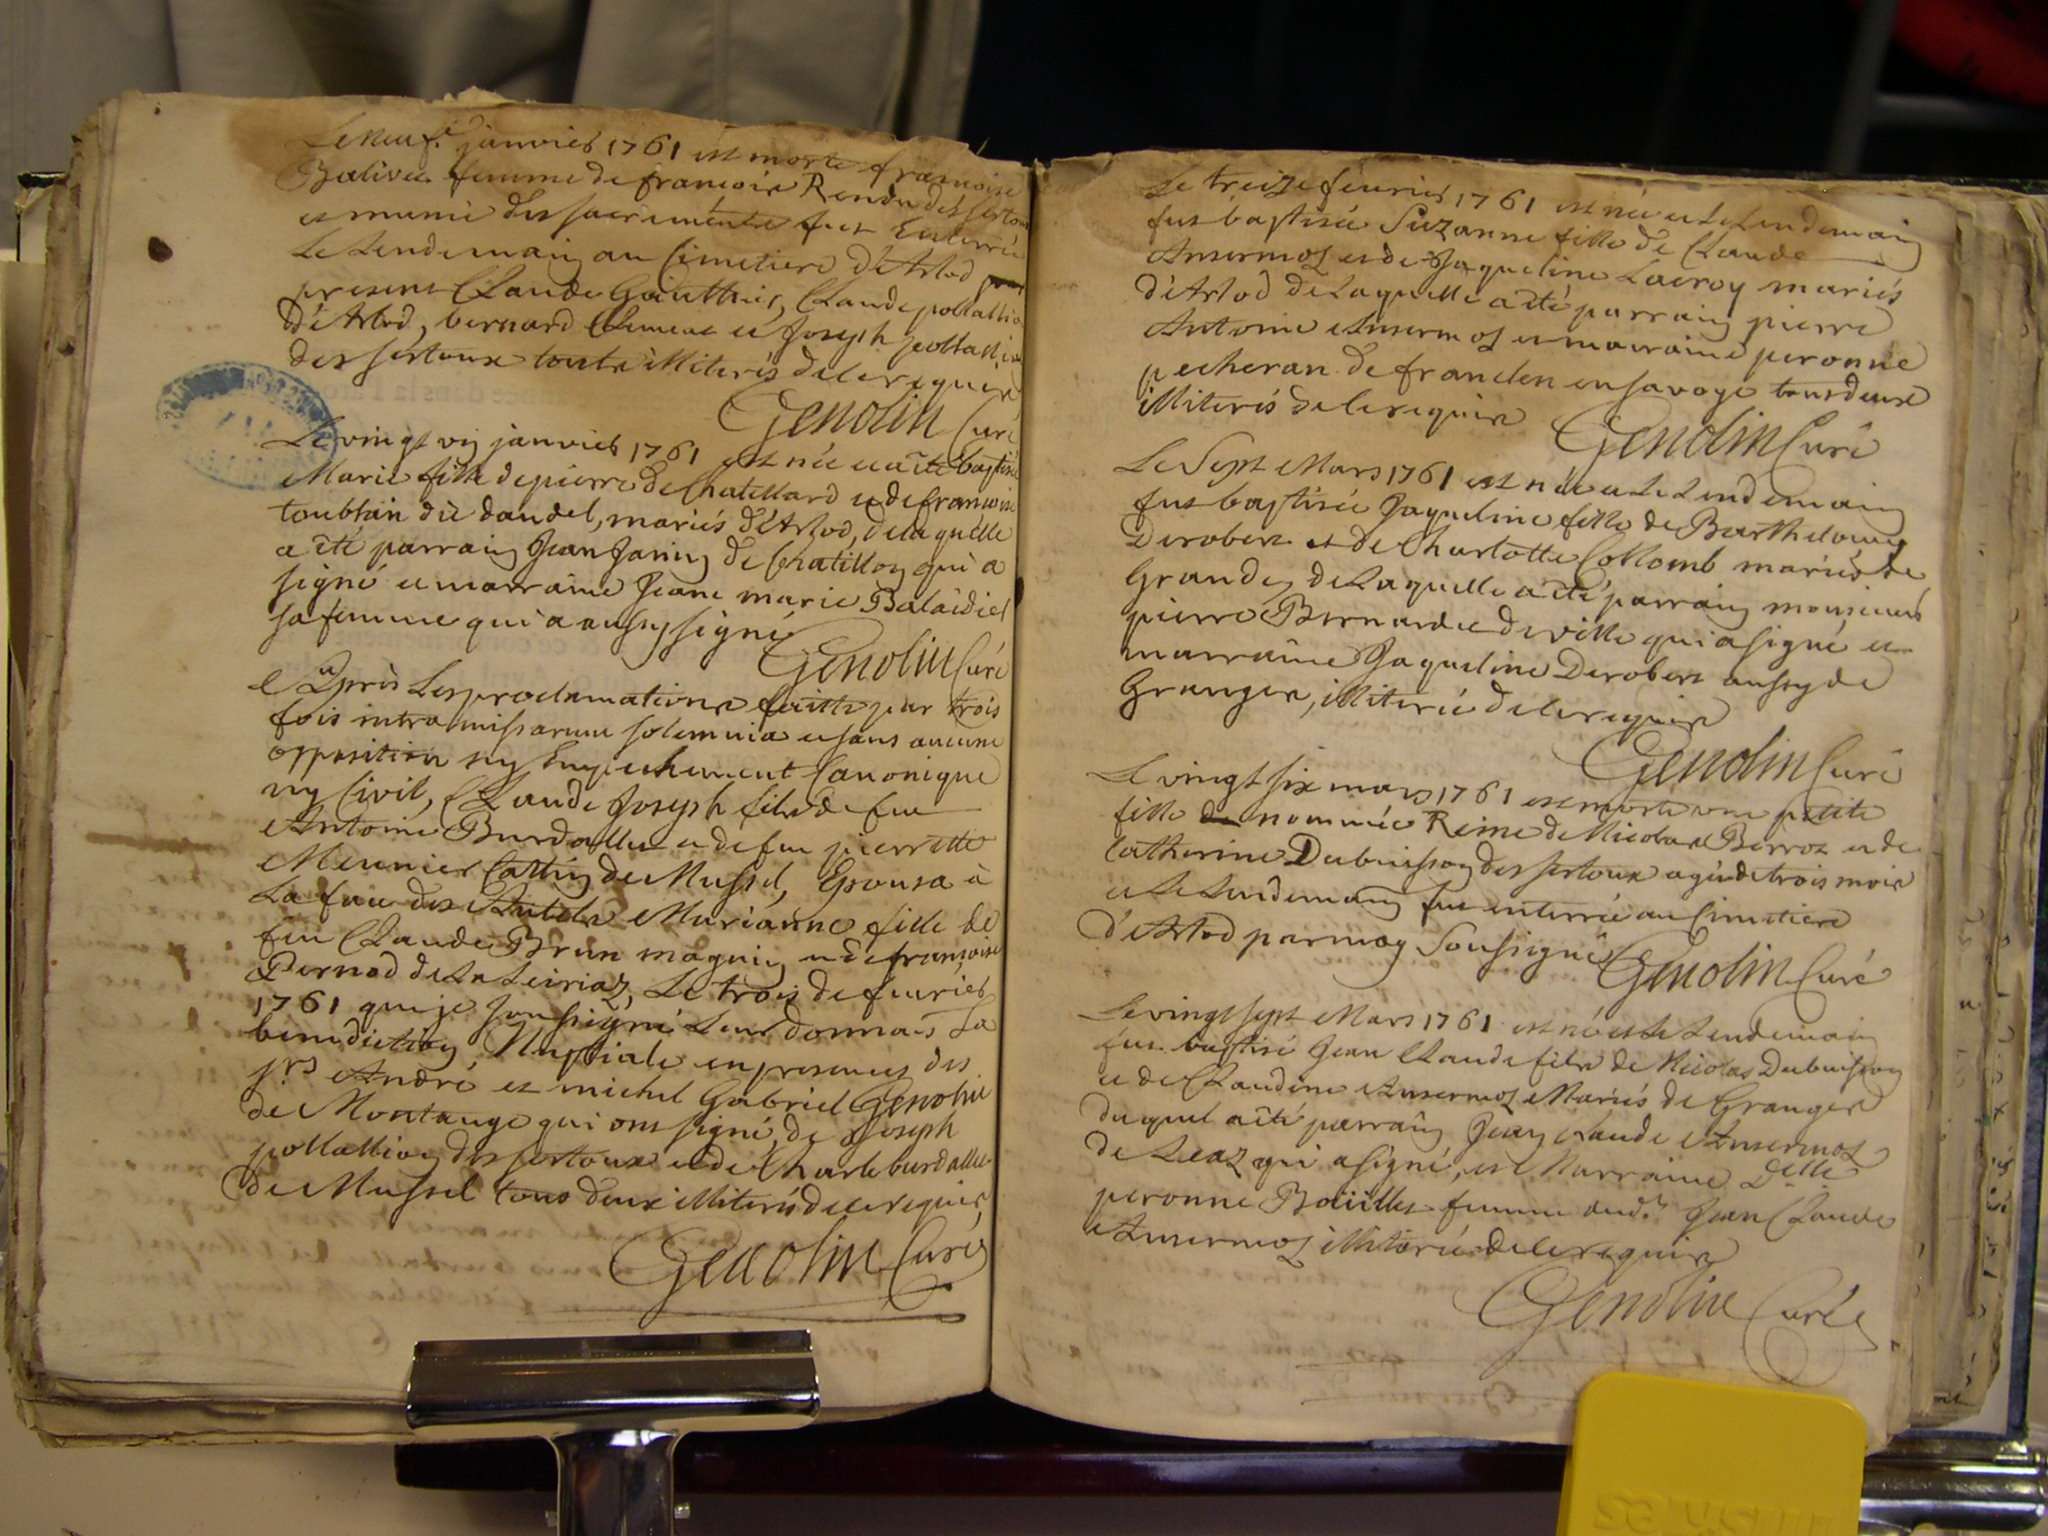 Le neuf.e janvier 1761 est morte francoise
Balivet femme de francois Rendu des sertoux
et munie des sacrements fut Enterrée
Le Lendemain au Cimetiere d'Arlod
present Claude Gauthier, Claude pollallion
D'Arlod, bernard Clement et Joseph pollallion
des sertoux touts illiterés de ce requis
Genolin Curé
Le vingt vij janvier 1761 est née et a été baptisée
Marie fille de pierre de Chatillard et de francoise
toublan dit dandel, mariés d'Arlod, de laquelle
a été parrain Jean Janin de Chatillon qui a
signé et marraine Jeane marie Baladier
sa femme qui a aussy signé
Genolin Curé
Après Les proclamations faitte par trois
fois intra missarum solemnia et sans aucune
opposition ny Empechement Canonique
ny Civil, Claude Joseph fils de feu
Antoine Burdallet et de feu pierrette
Meunier Cattin de Mussel, Epousa à
La face des Autels Marianne fille de
feu Claude Brun magnin et de françoise
Pernod de La Leiriaz, Le trois de feurier
1761 que je soussigné Leur donnais La
benediction Nuptiale en presences des
srs André et michel Gabriel Genolin
de Montange qui ont signé, de Joseph
pollallion des sertoux et de Charle burdallet
de Mussel tous deux illiterés de ce requis,
Genolin Curé
Le treize feurier 1761 est née et Le Lendemain
fut baptisée Suzanne fille de Claude
Ansermoz et de Jaqueline Lacroy mariés
d'Arlod de Laquelle a été parrain pierre
Antoine Ansermoz et marraine peronne
pecheran de franclen en savoye tous deux
illiterés de ce requis
Genolin Curé
Le Sept Mars 1761 est née et Le Lendemain
fut baptisée Jaqueline fille de Barthelemy
Derobert et de Charlotte Collomb mariés de
Granges, de Laquelle a été parrain monsieur
pierre Bernard de ville qui a signé et
marraine Jaqueline Derobert aussy de
Granges, illiterée de ce requis
Genolin Curé
Le vingt six mars 1761 est morte une petite
fille nommée Reine de Nicolas Berroz et de
Catherine Dubuisson des sertoux agée de trois mois
et Le Lendemain fut enterrée au Cimetiere
D'Arlod par moy Soussigné Genolin Curé
Le vingt sept Mars 1761 est né et Le Lendemain
fut baptisé Jean Claude fils de Nicolas Dubuisson
et de Claudine Ansermoz Mariés de Granges
duquel a été parrain Jean Claude Ansermoz
de Leaz qui a signé, et Marraine Delle
peronne Boüillet femme dud.t Jean Claude
Ansermoz illiterée de ce requis
Genolin Curé